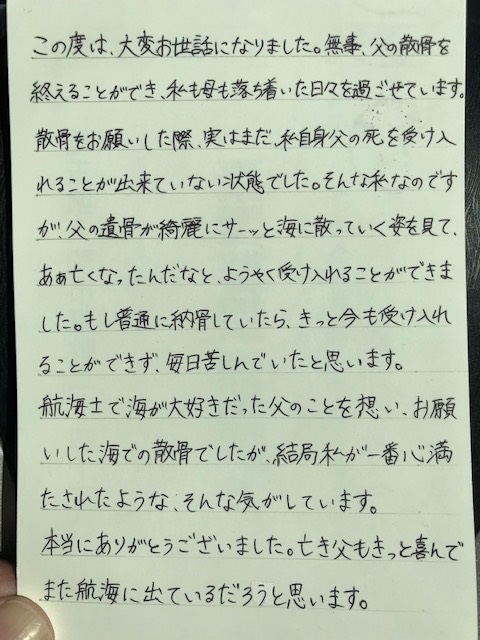 この度は、大変お世話になりました。無事、父の散骨を
終えることができ、私も母も落ち着いた日々を過ごせています。
散骨をお願いした際、実はまだ、私自身父の死を受け入
れることが出来ていない状態でした。そんな私なのです
が、父の遺骨が綺麗にサーッと海に散っていく姿を見て、
あぁ亡くなったんだなと、ようやく受け入れることができま
した。もし普通に納骨していたら、きっと今も受け入れ
ることができず、毎日苦しんでいたと思います。
航海士で海が大好きだった父のことを想い、お願
いした海での散骨でしたが、結局私が一番心満
たされたような、そんな気がしています。
本当にありがとうございました。亡き父もきっと喜んで
また航海に出ているだろうと思います。